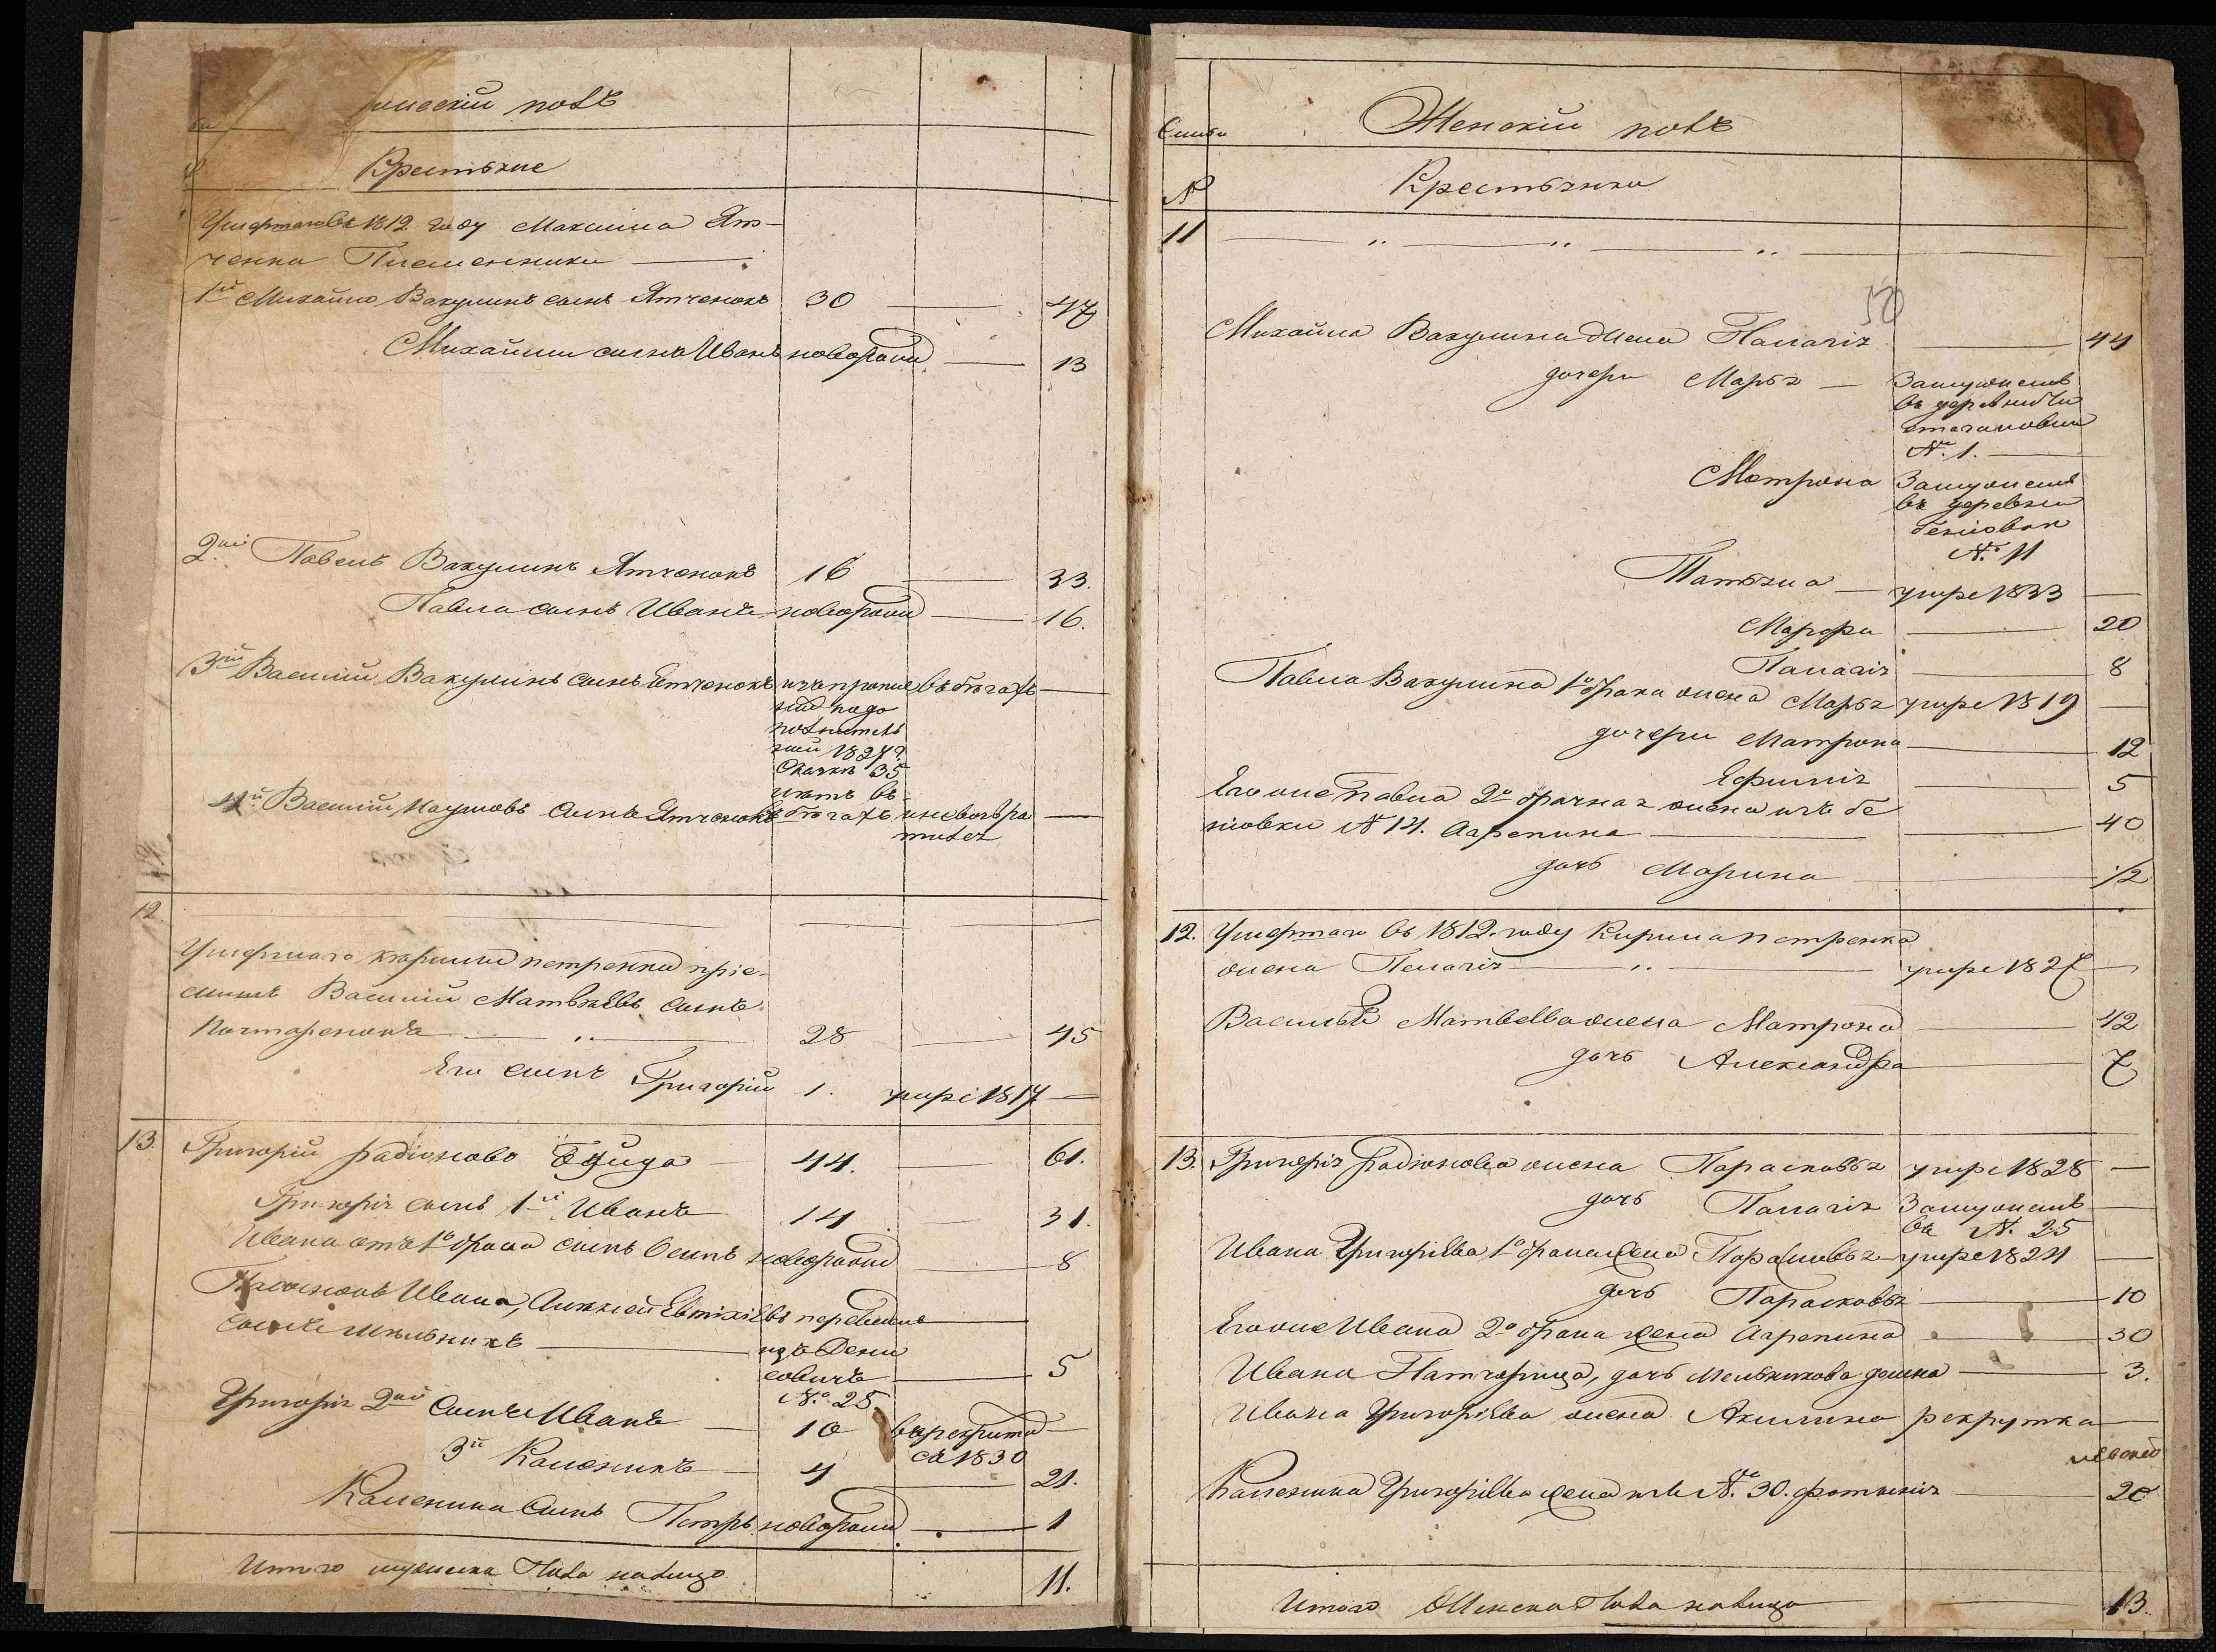 полъ
Крестьяне
1812 году Максима Ят-
ченка Племенники
1й Михайло Вакулинъ сынъ Ятченокъ 30 47
Михайлы сынъ Иванъ новорожд 13
2ий Павелъ Вакулинъ Ятченокъ 16 33.
Павла сынъ Иванъ новорожд 16.
3ий Василий Вакулинъ сынъ Ятченокъ въ бѣгахъ
1827
35
въ
4й Василий Наумовъ сынъ Ятченокъ бѣгахъ и невозвра
тился
12.
Умершаго Кирилла Петренка приe-
мышъ Василий Матвѣевъ сынъ
28 45
Его сынъ Григорий 1. умре 1817
13. Григорий Радионовъ 44. 61.
Григорія сынъ 1й Иванъ 14 31.
Ивана отъ 1о брака сынъ Осипъ новорожд 8
Ивана, Алексей Евтихіевъ переведенъ
сынъ Мельникъ
изъ Дени
совичъ 5
№ 25
Григорія 2ий сынъ Иванъ 10 въ рекруты
съ 1830
3й Каленикъ 4 21.
Каленика сынъ Петръ новорожд 1
Итого мужеска пола налицо 11.
Семьи Женскій полъ
№ Крестьянки
11
50
Михайла Вакулина жена Палагія 44
дочери Марья Замужемъ
въ деревни Чи
стогаловки
№ 1.
Мотрона Замужемъ
въ деревни
беновки
№ 11
Татьяна умре 1833
Марфа 20
Палагія 8
Павла Вакулина 1о брака жена Марья умре 1819
дочери Матрона 12
Ефимія 5
Его же Павла 2о брачная жена изъ бе
новки № 14. Агрепина 40
дочь Марина 12
12. Умершаго въ 1812. году Кирила Петренка
жена Пелагія умре 1827
Василья Матвеева жена Матрона 42
дочь Александра 7
13. Григорія Радионова жена Парасковья умре 1828
дочь Палагія Замужемъ
въ № 25
Ивана Григоріева 1о брака жена Парасковья умре 1824
дочь Парасковья 10
Его же Ивана 2о брака жена Агрепина 30
Ивана Патчерица, дочь Мельникова Домна 3.
Ивана Григоріева жена Акилина рекрутка
Каленика Григоріева жена изъ № 30. Фотинія 20
Итого Женска пола налицо 13.